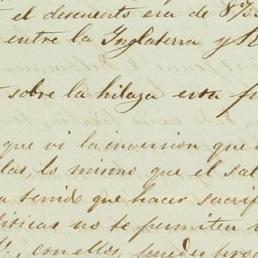 el descuento era de 87
entre la Inglaterra y
sobre la hilaza esta
que vi la inversion que
las, lo mismo que el sal
tenido que hacer sacrif
no te permiten
con ellos, puedes pro